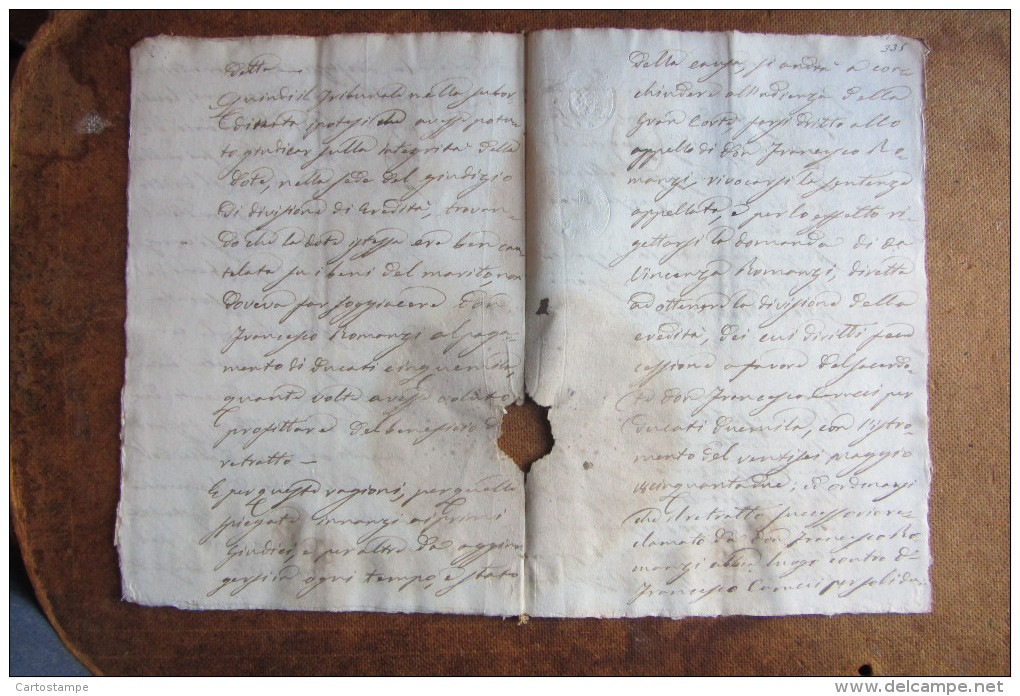 detta —
Quindi il Tribunale nella subor
ditanta ipotesi che avesse potu
to giudicar sulla integrità della
dote, nella sede del giudizio
di divisione di eredità, trovan
do che la dote istessa era ben cau
telata su i beni del marito, non
doveva far soggiacere don
Francesco Romanzi al paga
mento di ducati cinquemila,
quante volte avesse voluto
profittare del beneficio di
retratto —
E per queste ragioni, per quelle
piegate innanzi ai primi
Giudici, e per altre da aggiun
gersi in ogni tempo, è stato
335
della causa, si andrà a con
chiudere all'udienza della
Gran Corte, farsi dritto allo
appello di don Francesco Ro-
manzi, rivocarsi la sentenza
appellata, e per lo effetto ri-
gettarsi la domanda di da
Vincenza Romanzi, diretta
ad ottenere la divisione della
eredità, dei cui diritti fece
cessione a favore del sacerdo-
te don Francesco per
ducati duemila, con l'istro-
mento del ventisei maggio
cinquantadue; ed ordinarsi
che il retratto successorio re-
clamato da don Francesco Ro
manzi abbia luogo contro Dn
Francesco per soli du
Cartostampe
delcampe.net